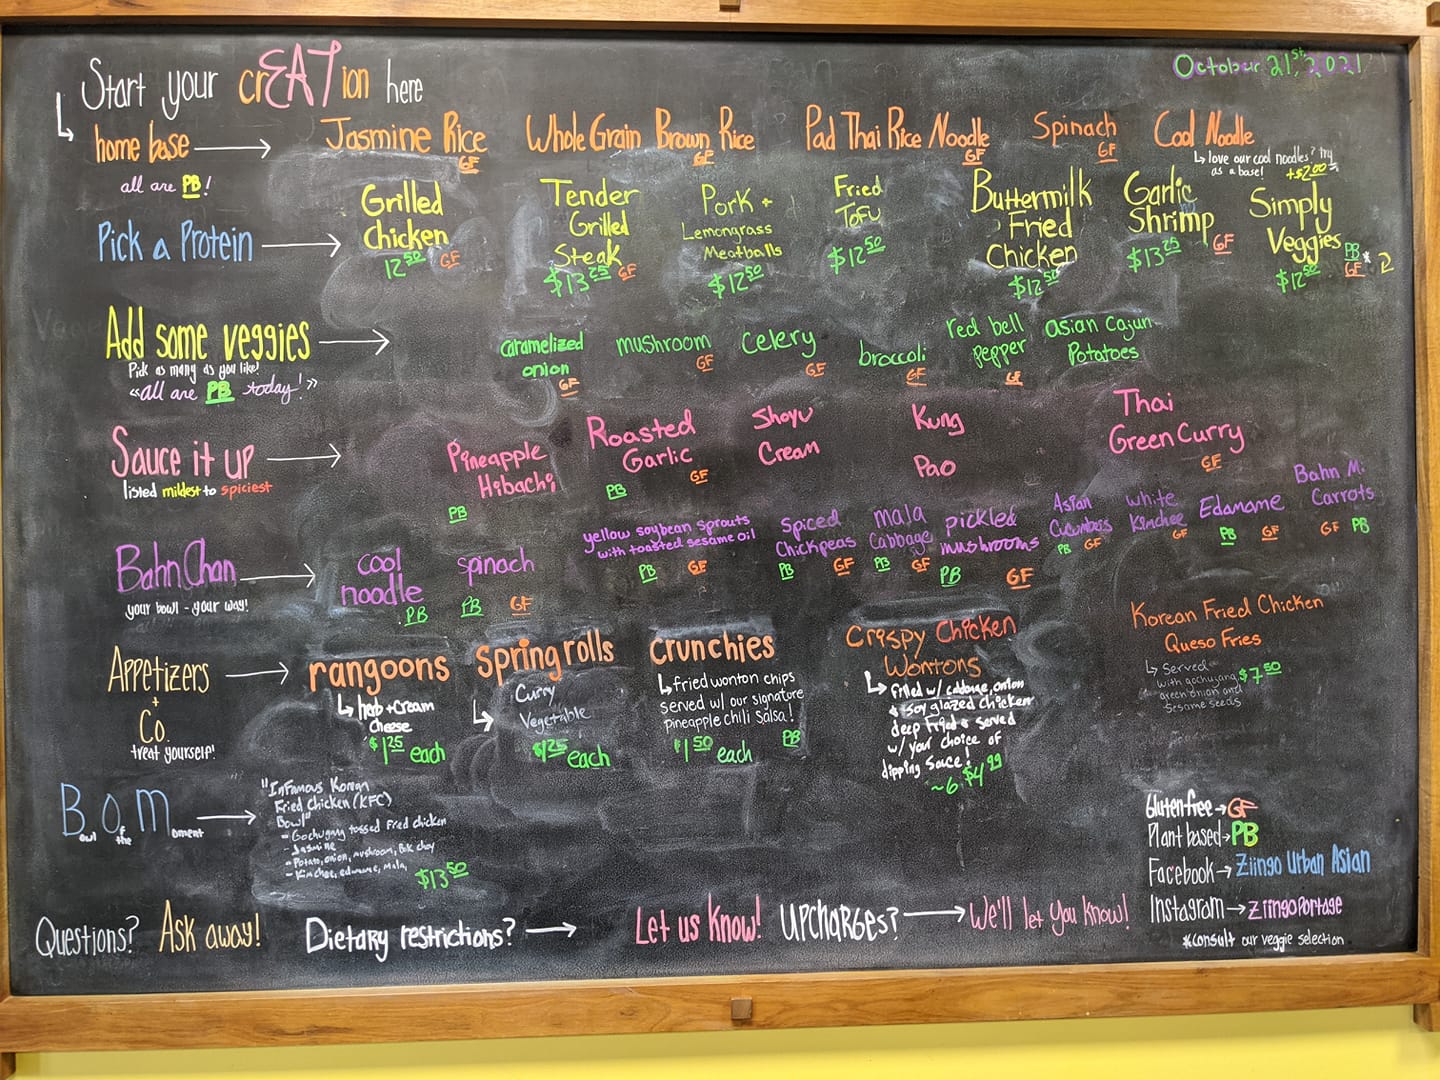 Start your crEATion here
October 21st, 2021
home base → Jasmine Rice GF Whole Grain Brown Rice GF Pad Thai Rice Noodle GF Spinach GF Cool Noodle
all are PB!
↳ love our cool noodles? try as a base! +$2.00
Pick a Protein →
Grilled Chicken 12.50 GF
Tender Grilled Steak $13.25 GF
Pork + Lemongrass Meatballs $12.50
Fried Tofu $12.50
Buttermilk Fried Chicken $12.50
Garlic Shrimp $13.25 GF
Simply Veggies PB GF * $12.50
Add some veggies →
Pick as many as you like!
"all are PB today!"
caramelized onion GF
mushroom GF
celery GF
broccoli GF
red bell pepper GF
asian cajun Potatoes
Sauce it up →
listed mildest to spiciest
Pineapple Hibachi PB
Roasted Garlic PB GF
Shoyu Cream
Kung Pao
Thai Green Curry GF
Bahn Chan →
your bowl - your way!
cool noodle PB
spinach PB GF
yellow soybean sprouts with toasted sesame oil PB GF
spiced Chickpeas PB GF
mala Cabbage PB GF
pickled mushrooms PB GF
Asian Cucumbers PB GF
white Kimchee GF
Edamame PB GF
Bahn Mi Carrots GF PB
Appetizers + Co. →
treat yourself!
rangoons
↳ herb + cream cheese
$1.25 each
spring rolls
↳ Curry Vegetable
$1.25 each
crunchies
↳ fried wonton chips
served w/ our signature
pineapple chili salsa! PB
$1.50 each
Crispy Chicken Wontons
↳ filled w/ cabbage, onion
& soy glazed chicken
deep fried & served
w/ your choice of
dipping sauce!
~6 $4.99
Korean Fried Chicken
Queso Fries
↳ Served
with gochujang $7.50
green onion and
sesame seeds
Bowl of the Moment →
"Infamous Korean
Fried Chicken (KFC)
Bowl"
- Gochujang tossed Fried chicken
- Jasmine
- Potato, onion, mushroom, Bok choy
- Kimchee, edamame, Mala,
$13.50
Gluten free → GF
Plant based → PB
Facebook → Ziingo Urban Asian
Instagram → Ziingoportage
*consult our veggie selection
Questions? Ask away! Dietary restrictions? → Let us know! Upcharges? → We'll let you know!